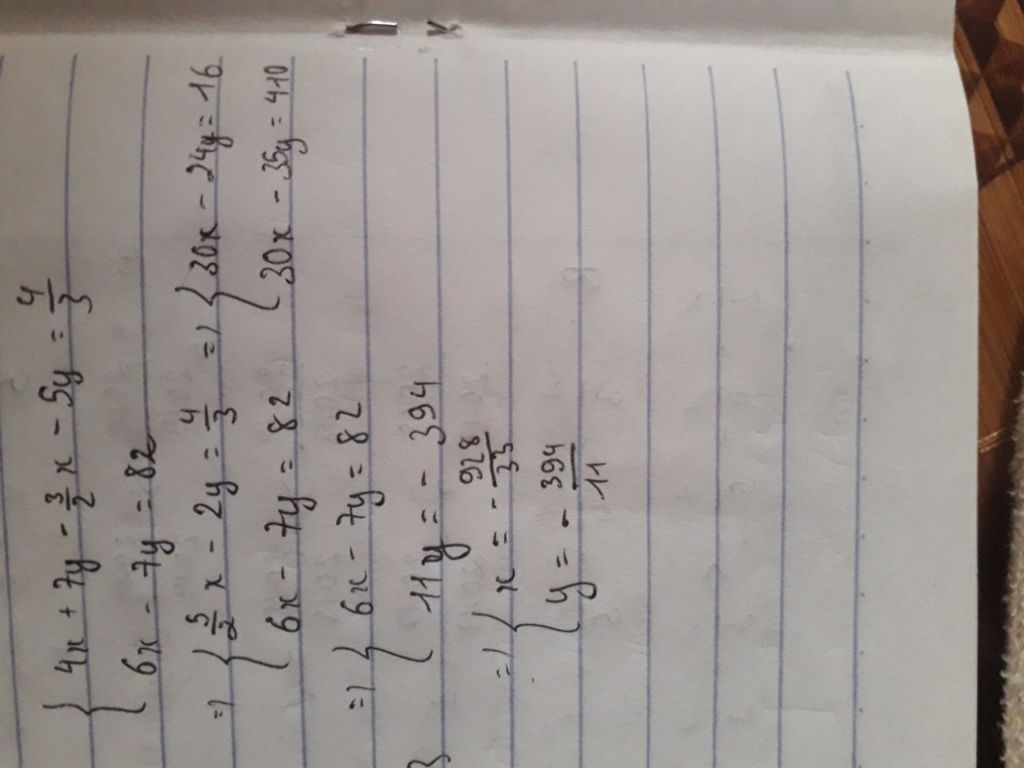 { 4x + 7y - 3/2 x - 5y = 4/3
6x - 7y = 82
=) { 5/2 x - 2y = 4/3 =) { 30x - 24y = 16
6x - 7y = 82 30x - 35y = 410
=) { 6x - 7y = 82
11y = - 394
=) { x = - 928/33
y = - 394/11